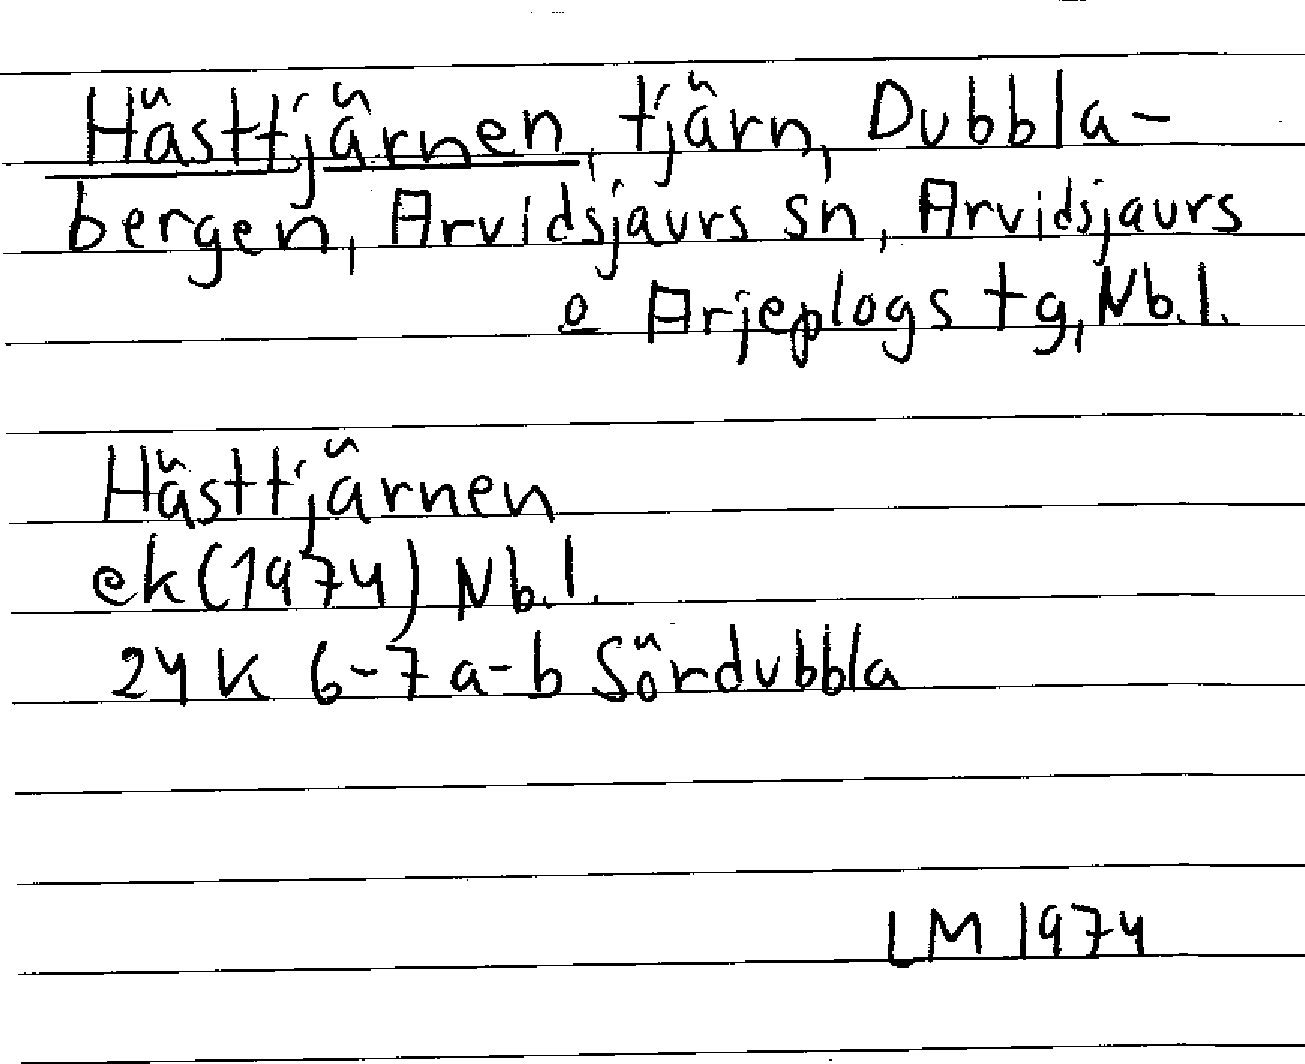 Hästtjärnen, tjärn, Dubbla-
bergen, Arvidsjaurs sn, Arvidsjaurs
o Arjeplogs tg, Nb.l.
Hästtjärnen
ek (1974) Nb.l.
24K 6-7 a-b Sördubbla
LM 1974